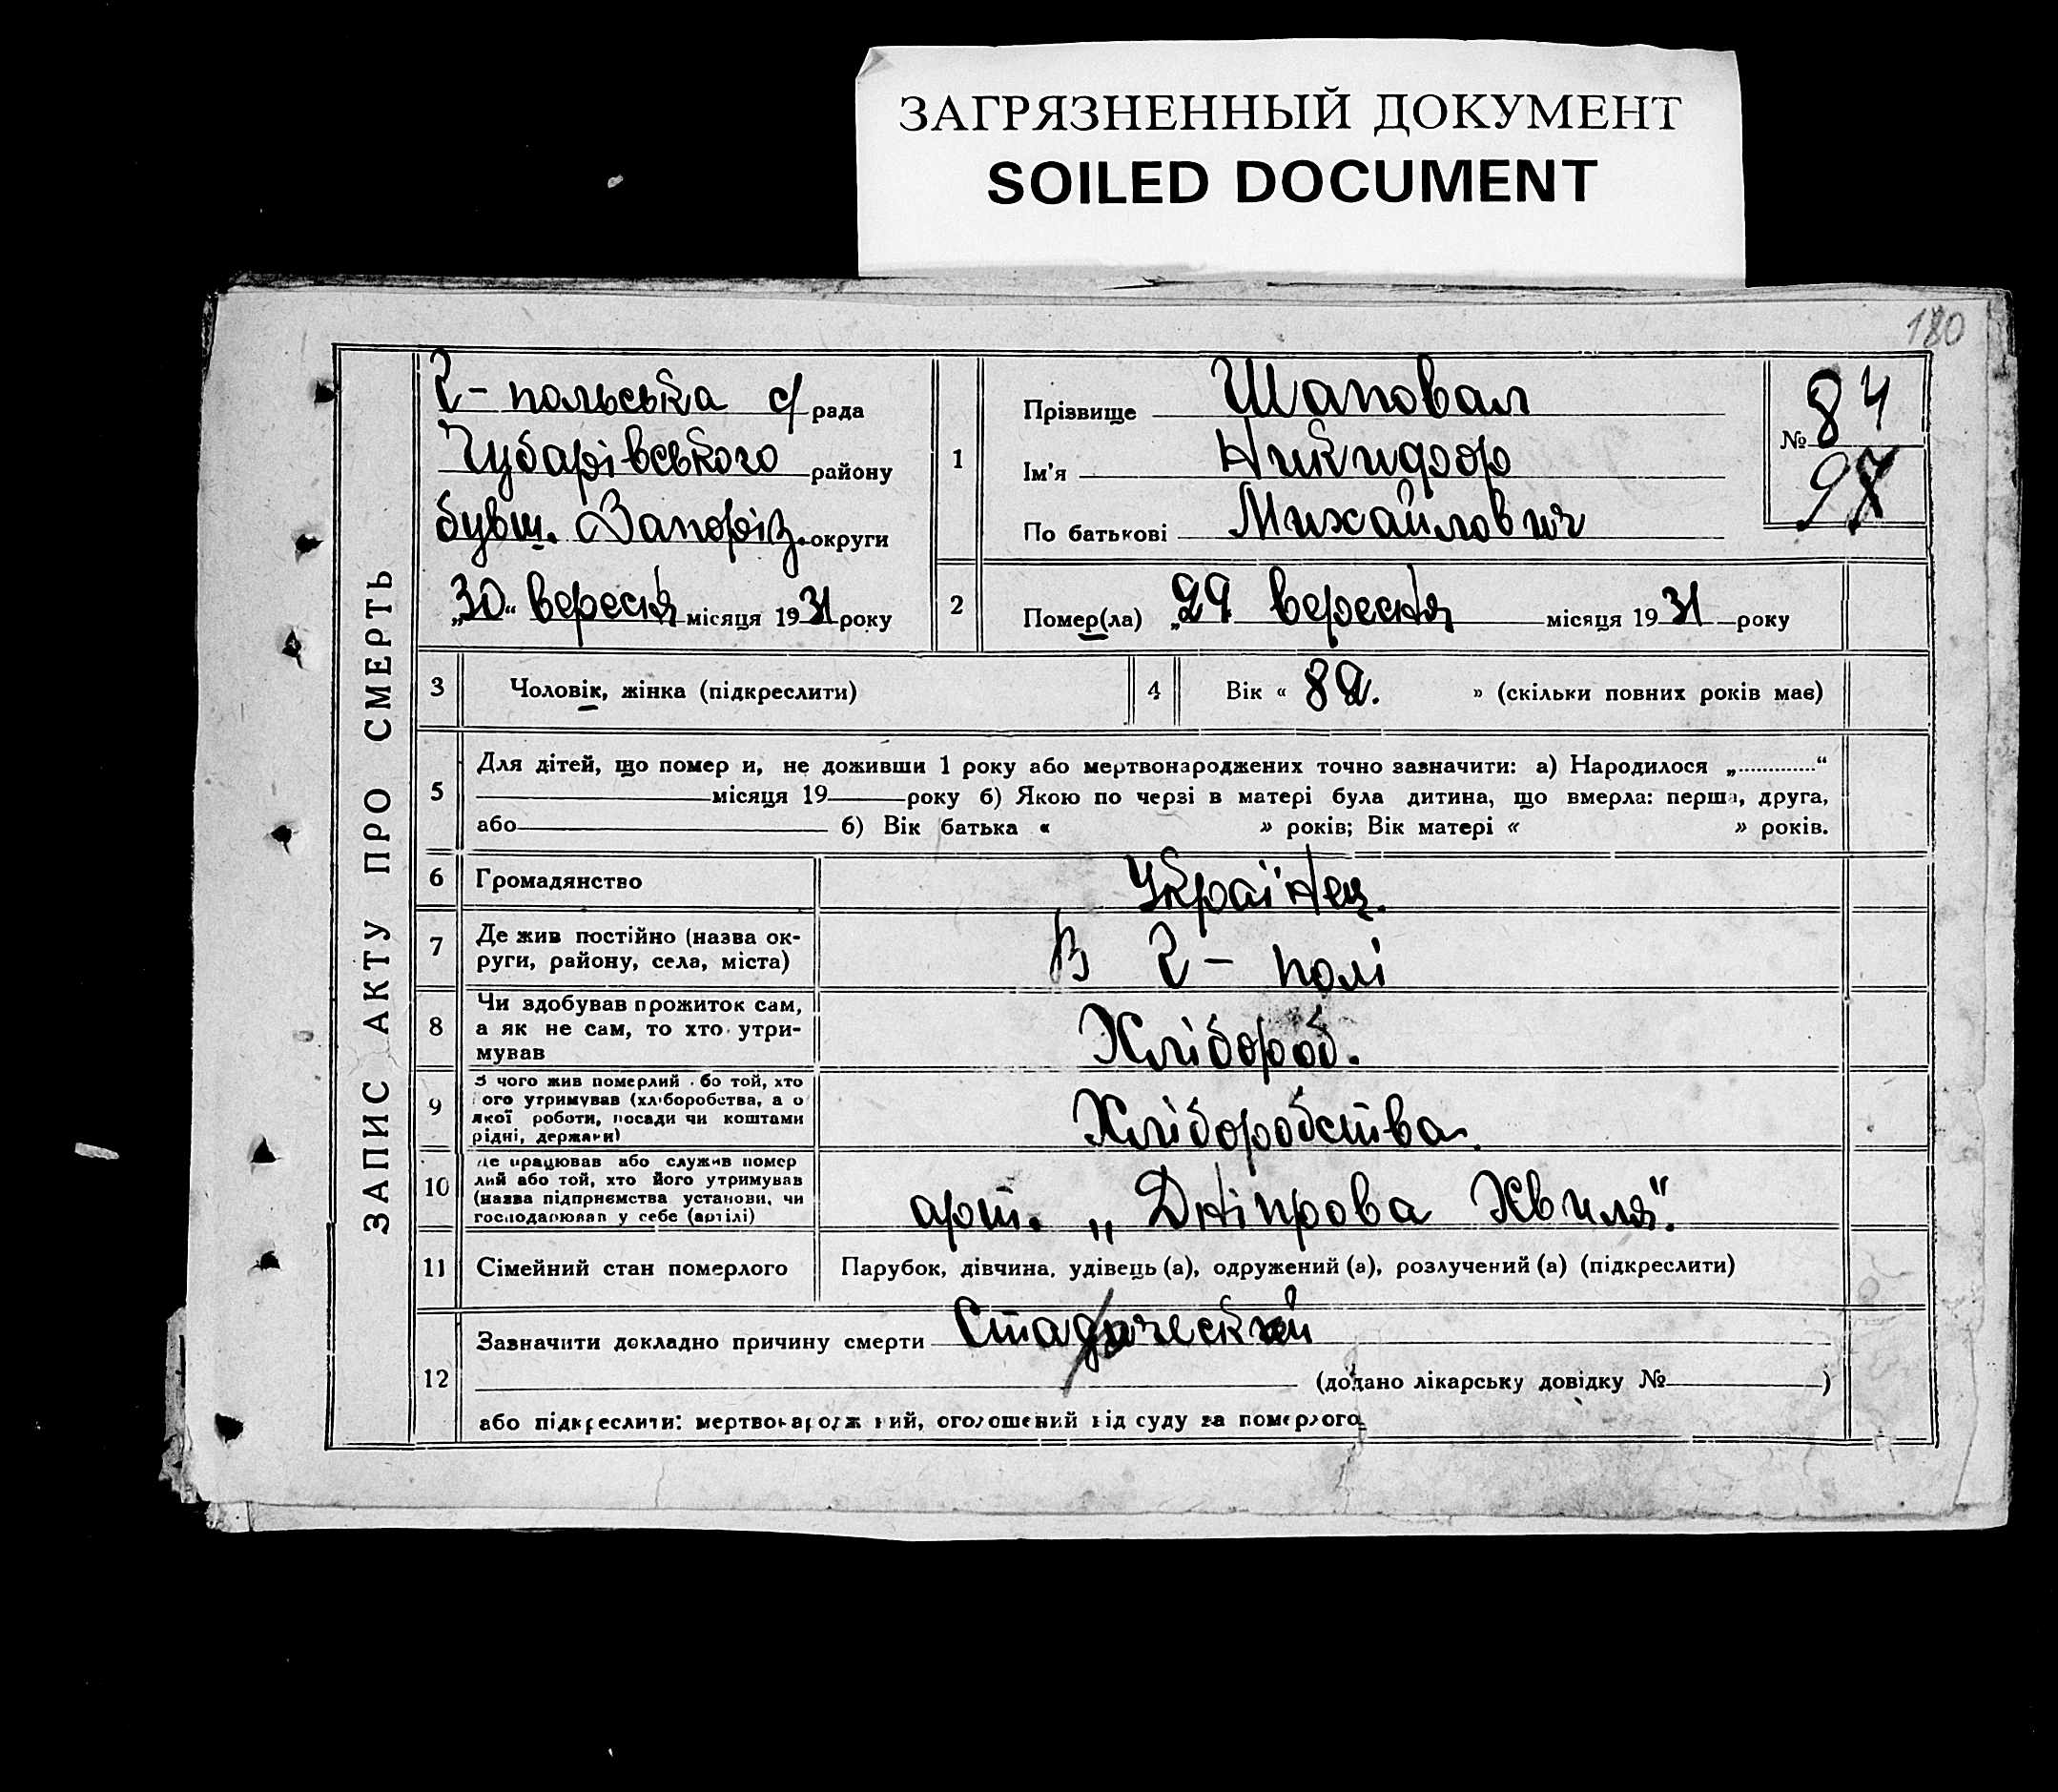 ЗАГРЯЗНЕННЫЙ ДОКУМЕНТ
SOILED DOCUMENT
180
ЗАПИС АКТУ ПРО СМЕРТЬ
г-польська с/рада
Чубарівського району
бувш. Запоріз. округи
„30“ вересня місяця 1931 року
1
Прізвище Шаповал
Ім'я Никидфор
По батькові Михайлович
№ 84
97
2
Помер(ла) „29 вересня місяця 1931 року
3 Чоловік, жінка (підкреслити)
4 Вік « 82. » (скільки повних років має)
5
Для дітей, що помер и, не доживши 1 року або мертвонароджених точно зазначити: а) Народилося „.............“
місяця 19 року б) Якою по черзі в матері була дитина, що вмерла: перша, друга,
або б) Вік батька « » років; Вік матері « » років.
6 Громадянство Українец.
7 Де жив постійно (назва ок-
руги, району, села, міста)
В г- полі
8 Чи здобував прожиток сам,
а як не сам, то хто утри-
мував
Хлібороб.
9 З чого жив померлий бо той, хто
ого утримував (хліборобства, а о
якої роботи, посади чи коштами
рідні, держави)
Хліборобства.
10 де працював або служив помер
лий або той, хто його утримував
(назва підприємства установи, чи
господарював у себе (артілі)
арт. „Дніпрова Хвиля".
11 Сімейний стан померлого Парубок, дівчина, удівець (а), одружений (а), розлучений (а) (підкреслити)
12 Зазначити докладно причину смерти
(додано лікарську довідку № )
або підкреслити: мертвонародж ний, оголошений від суду за померлого.